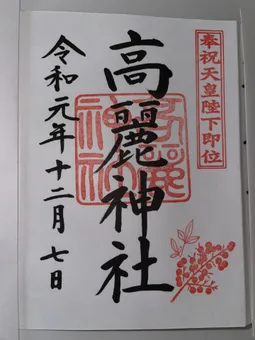 奉祝天皇陛下即位
高麗神社
令和元年十二月七日